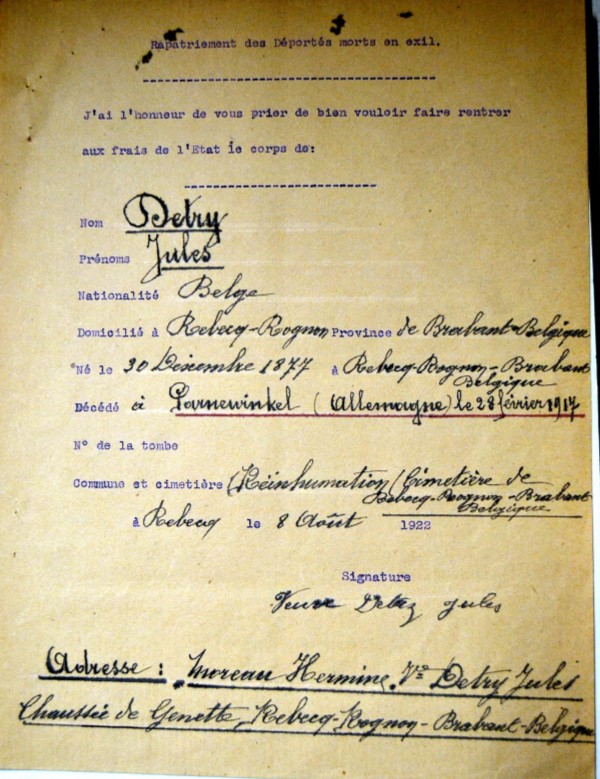 Rapatriement des Déportés morts en exil.
J'ai l'honneur de vous prier de bien vouloir faire rentrer
aux frais de l'Etat le corps de:
Nom Detry
Prénoms Jules
Nationalité Belge
Domicilié à Rebecq-Rognon Province de Brabant-Belgique
Né le 30 Décembre 1877 à Rebecq-Rognon-Brabant
Belgique
Décédé à Parnewinkel (Allemagne) le 28 février 1917
N° de la tombe
Commune et cimetière (Réinhumation) Cimetière de
Rebecq-Rognon-Brabant
Belgique
à Rebecq le 8 Août 1922
Signature
Veuve Detry Jules
Adresse : Moreau Hermine, Ve Detry Jules
Chaussée de Genette, Rebecq-Rognon-Brabant-Belgique